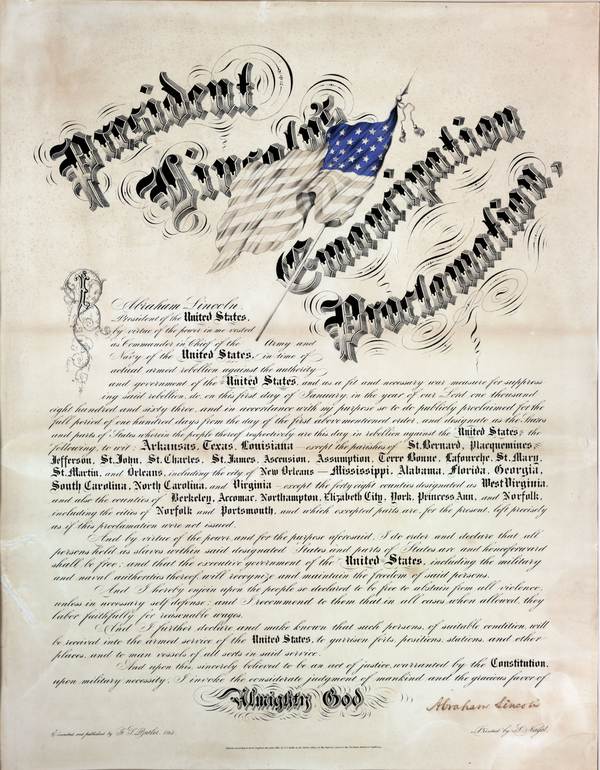 President
Lincoln's
Emancipation
Proclamation,
I Abraham Lincoln,
President of the United States,
by virtue of the power in me vested
as Commander in Chief of the Army and
Navy of the United States, in time of
actual armed rebellion against the authority
and government of the United States, and as a fit and necessary war measure for suppress
ing said rebellion, do, on this first day of January, in the year of our Lord one thousand
eight hundred and sixty three, and in accordance with my purpose so to do publicly proclaimed for the
full period of one hundred days from the day of the first above mentioned order, and designate as the States
and parts of States wherein the people thereof respectively are this day in rebellion against the United States, the
following, to wit: Arkansas, Texas, Louisiana – except the parishes of St. Bernard, Placquemines,
Jefferson, St. John, St. Charles, St. James, Ascension, Assumption, Terre Bonne, Lafourche, St. Mary,
St. Martin, and Orleans, including the city of New Orleans — Mississippi, Alabama, Florida, Georgia,
South Carolina, North Carolina, and Virginia – except the forty eight counties designated as West Virginia,
and also the counties of Berkeley, Accomac, Northampton, Elizabeth City, York, Princess Ann, and Norfolk,
including the cities of Norfolk and Portsmouth, and which excepted parts are, for the present, left precisely
as if this proclamation were not issued.
And by virtue of the power, and for the purpose aforesaid, I do order and declare that all
persons held as slaves within said designated States and parts of States are and henceforward
shall be free; and that the executive government of the United States, including the military
and naval authorities thereof, will recognize and maintain the freedom of said persons.
And I hereby enjoin upon the people so declared to be free to abstain from all violence,
unless in necessary self defense; and I recommend to them that in all cases, when allowed, they
labor faithfully for reasonable wages.
And I further declare and make known that such persons, of suitable condition, will
be received into the armed service of the United States, to garrison forts, positions, stations, and other
places, and to man vessels of all sorts in said service.
And upon this, sincerely believed to be an act of justice, warranted by the Constitution,
upon military necessity, I invoke the considerate judgment of mankind and the gracious favor of
Almighty God
Abraham Lincoln
Executed and published by
Printed by